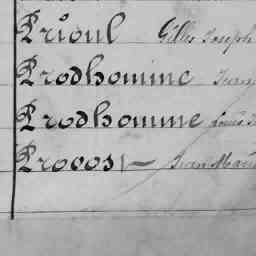 Prioul Gilles Joseph
Prodhomme
Prodhomme Louis
Provost Jean Marie